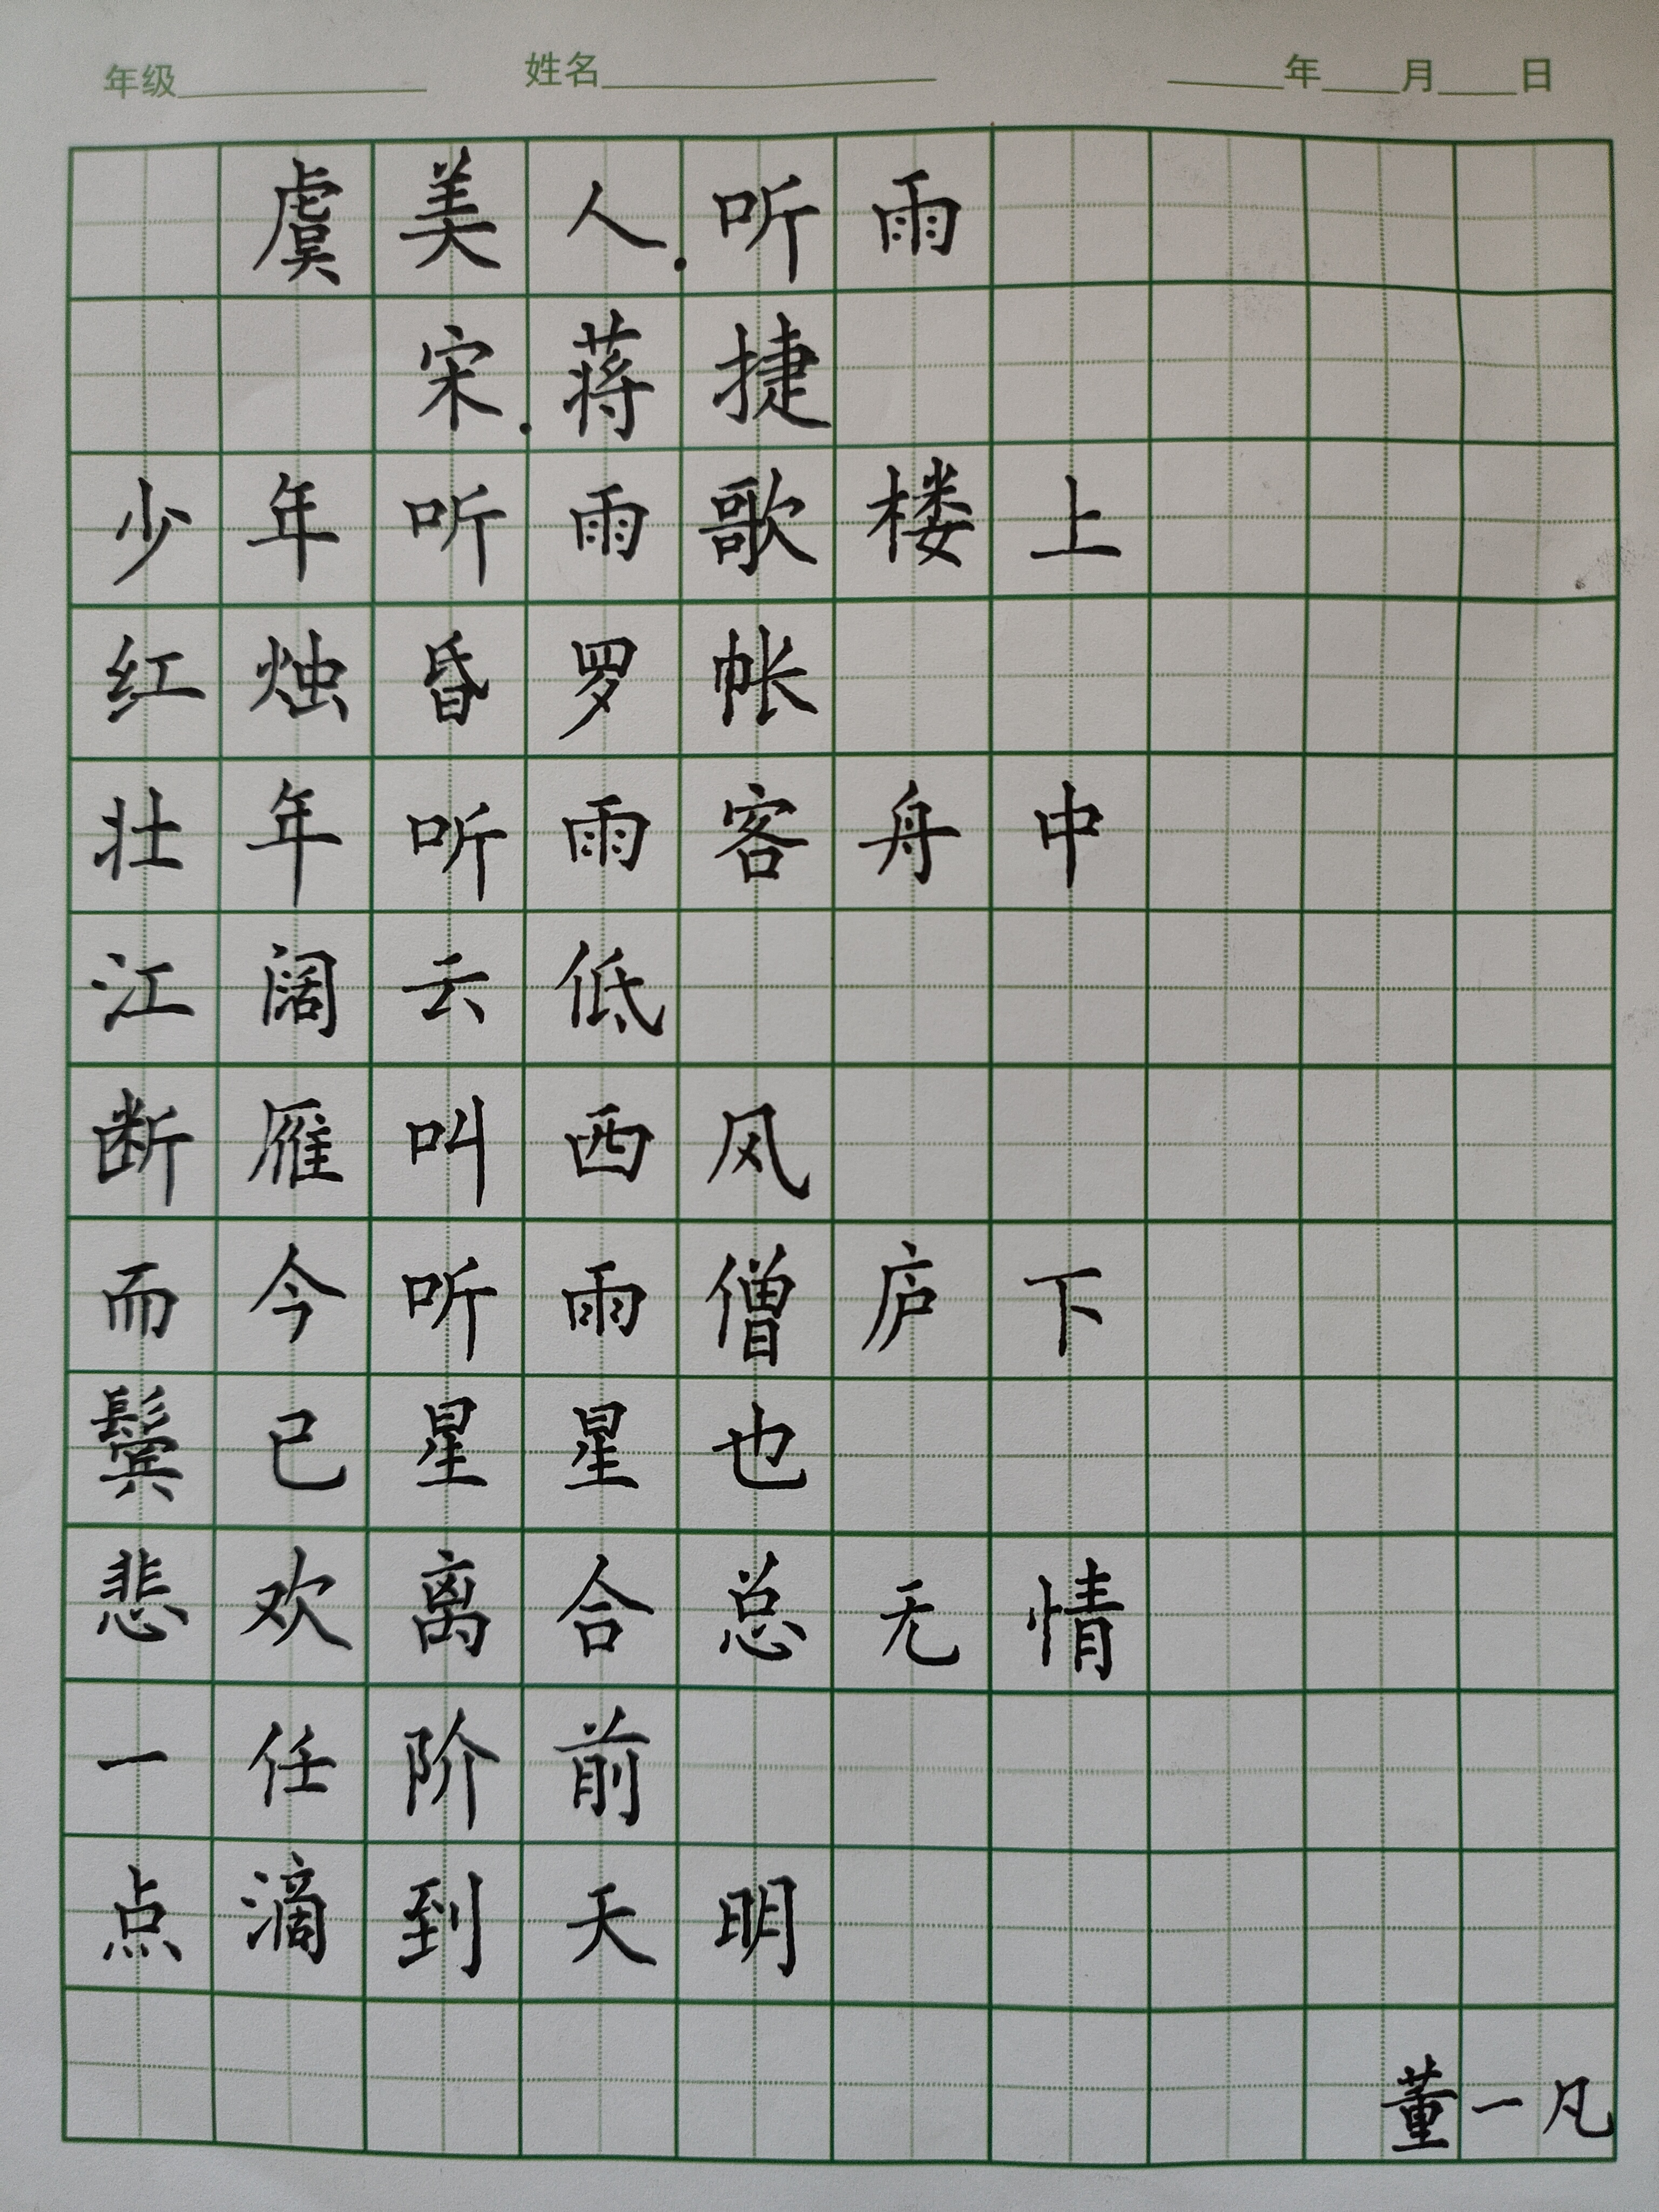 年级 姓名 年 月 日
虞美人·听雨
宋·蒋捷
少年听雨歌楼上
红烛昏罗帐
壮年听雨客舟中
江阔云低
断雁叫西风
而今听雨僧庐下
鬓已星星也
悲欢离合总无情
一任阶前
点滴到天明
董一凡